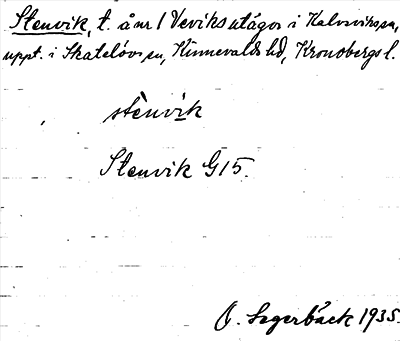 Stenvik, t. å nr 1 Veviks utägor i Kalvsviks sn,
uppt. i Skatelövs sn, Kinnevalds hd, Kronobergs l.
stènvik
Stenvik G15.
O. Sagerbäck 1935.